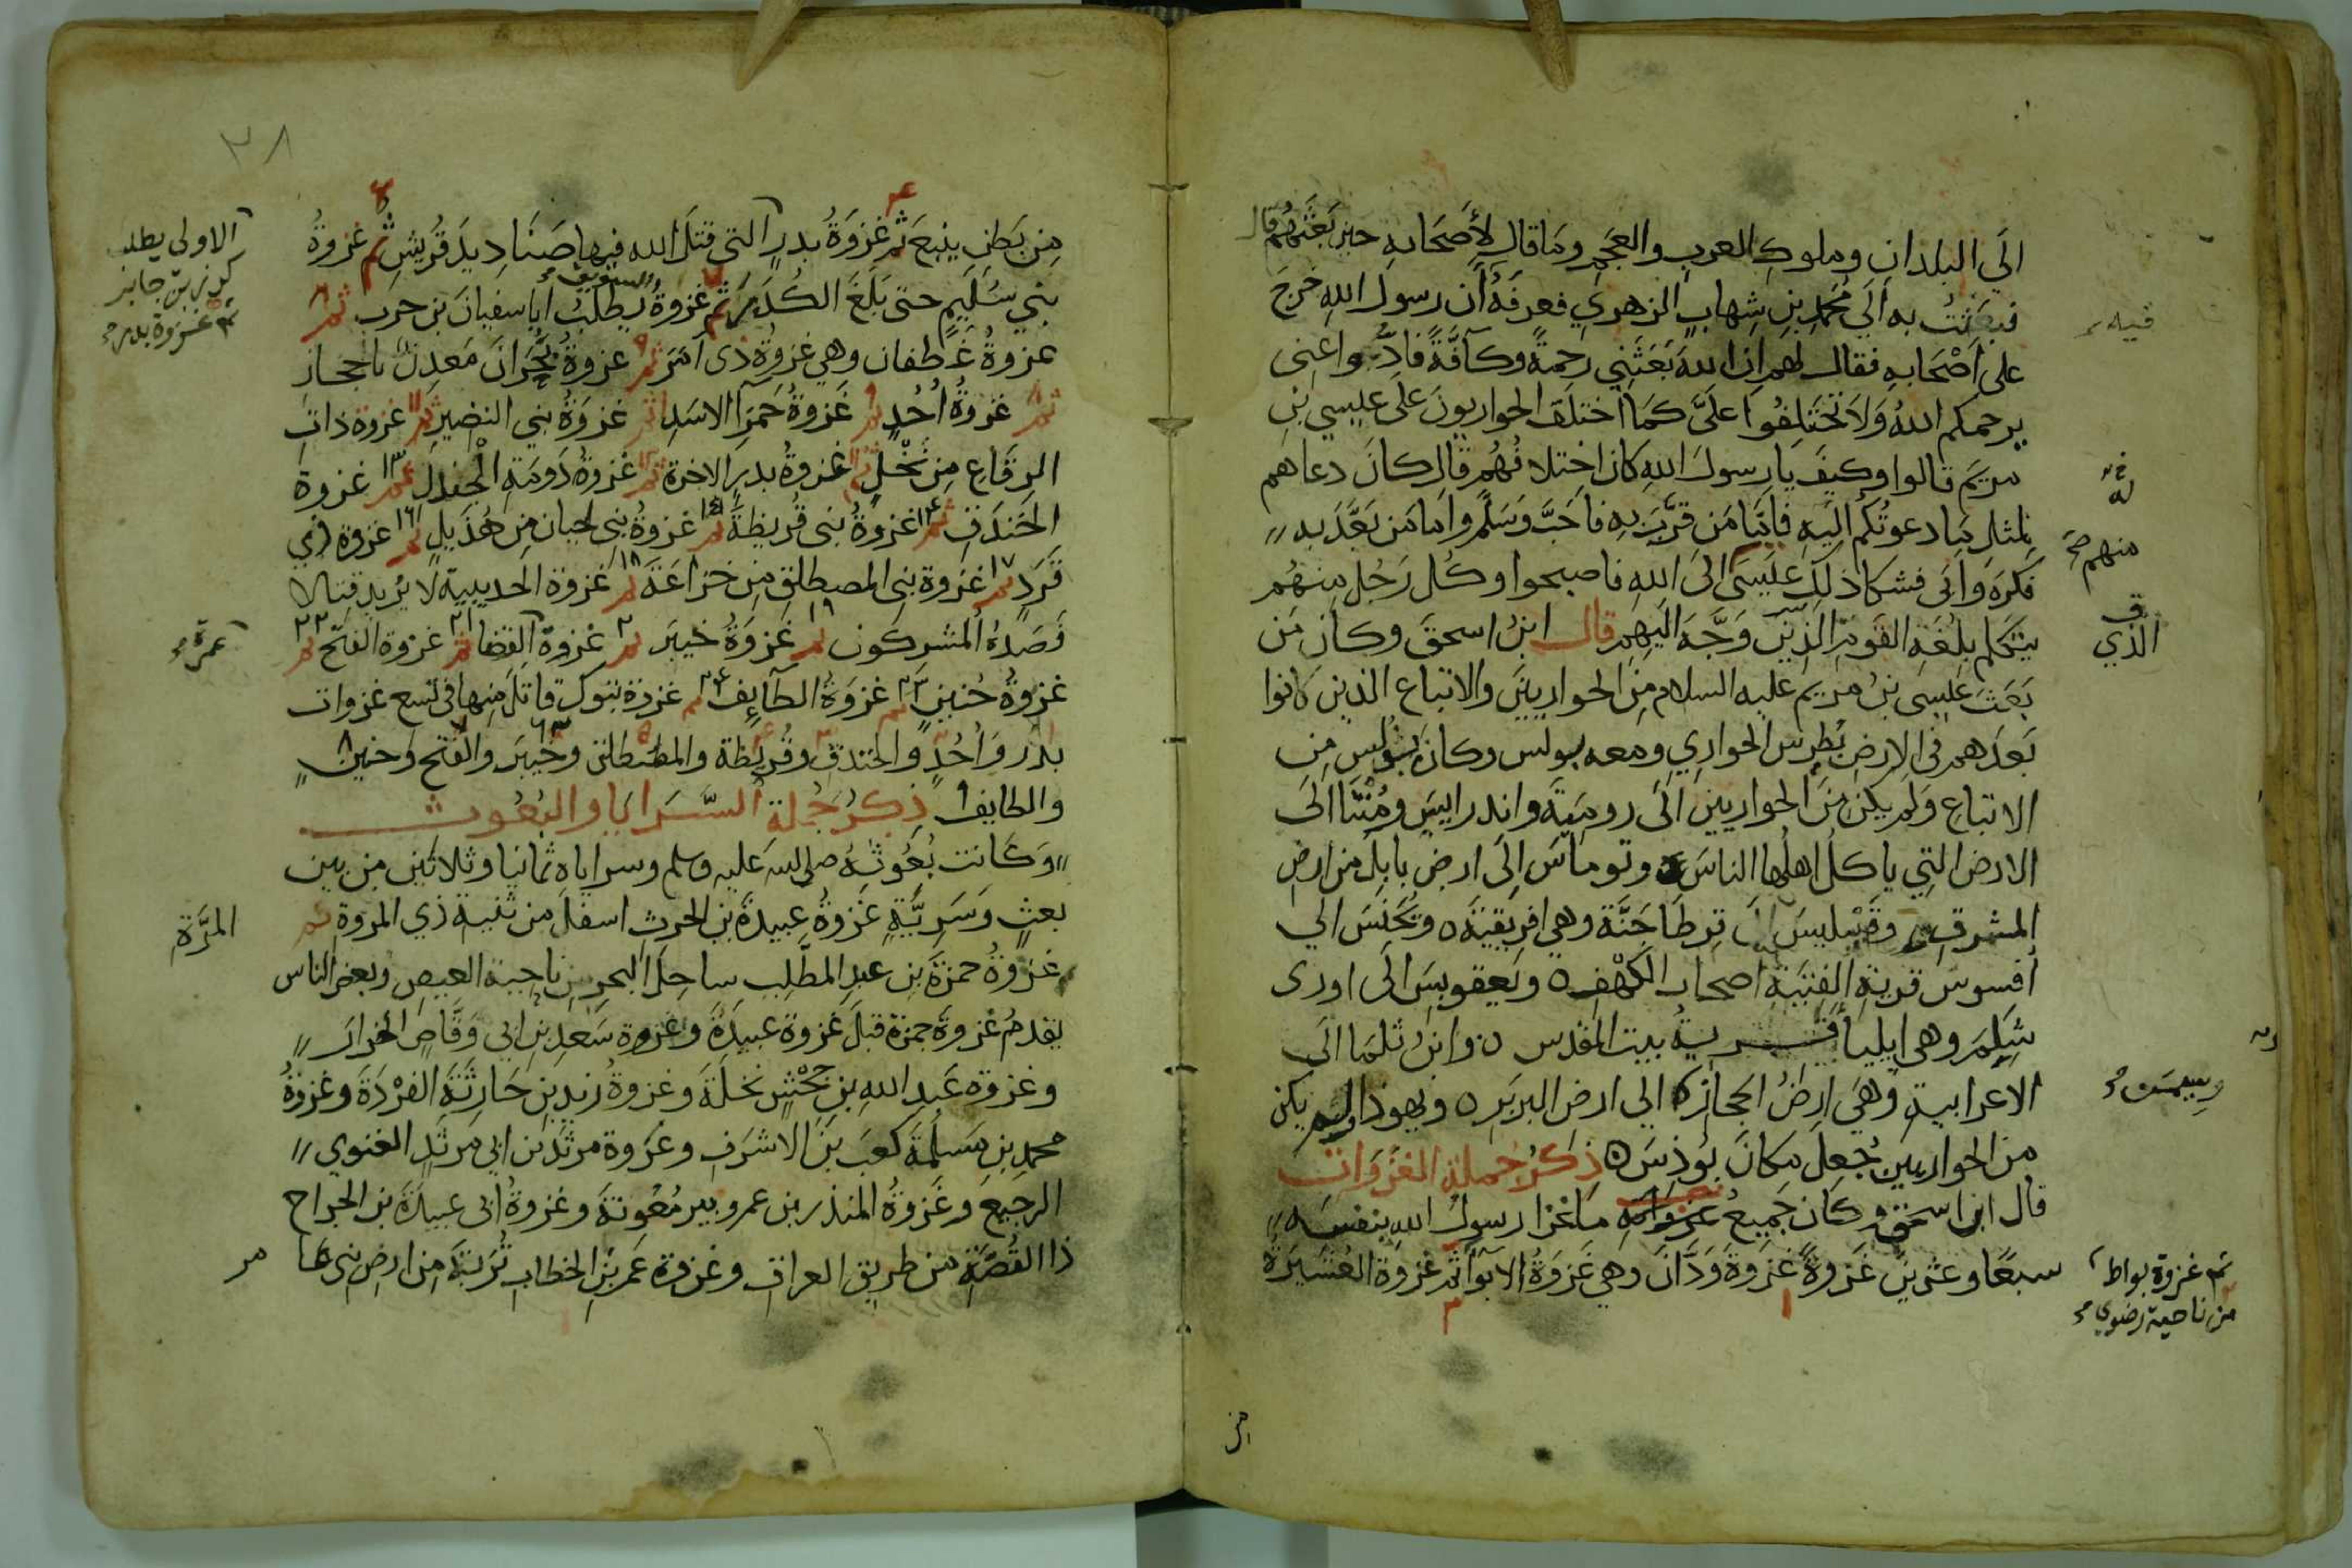 الَى البلدانِ وملوكِ العربِ والعجمِ وما قال لأصحابهِ حين بَعَثَهُم قال
فبعثتُ به الَي محمد بنِ شهابٍ الزهريِ فعرفَهُ أن رسول اللهِ خرجَ
على اصْحابهِ فقال لهم ان اللهَ بَعَثَنِي رحمةً وكآفَّةً فادُّوا عني
يرحمكم اللهُ ولا تختلِفُوا علىَّ كما اختلفَ الحواريونَ على عيسي بنِ
مريم قالوا وكيفَ يا رسولَ اللهِ كان اختلافُهُم قال كانَ دعاهم
لمثل ما دعوتُكم اليهِ فامَّا من قرَّبَ بهِ فاحبَّ وسَلَّم واما من بعَّد بهِ
فكرهَ وابَى فشكا ذلك عيسَى الىَ اللهِ فاصبحوا وكُل رَجُلٍ منهُم
يتكلم بلغةِ القومِ الذِينَ وَجَّهَ اليهِم قال ابنُ اسحقَ وكان مَن
بَعَثَ عيسى بنُ مريم عليه السلام مِنَ الحواريينَ والاتباع الذين كانوا
بعدَهم في الارضِ بُطرس الحواري ومعه بولس وكانَ بُولُس مِن
الاتباعِ ولم يكن منَ الحواريين الَى روميَةَ واندرايسَ ومُنتا الَىَ
الارض التِي ياكلُ اهلُها الناسَ وتوماسَ الَى ارض بابلَ من ارضِ
المشرقِ وقَيبليسَ الَى قرطَاجَنَّة وهي افريقيَه ويُحَنسَ الَي
أفسوسَ قريةِ الفتيَةِ اصحاب الكهْفِ ويعقوبسَ الَى اورى
شِلِمَ وهي ايليا قَريةُ بيت المقدس وابنُ ثلمَا الَى
الاعرابيةِ وهَي ارضُ الحجاز الي ارضِ البربَرِ ويهوذا ولم يكن
من الحواريين جُعِل مكانَ يُوذِسَ ذِكرُ جُملةِ الغَزَواتِ
قال ابن اسحقَ وكان جَميعُ ما غزا رسولُ اللهِ بنفسِه
سبعًا وعشرينَ غَزوةً غزوةَ وَدَّانَ وهي غَزوةُ الابوآ ثم غزوة العُشَيرَة
فيه
منهم صح
الذي
ثم غزوة بواط
من ناحية رضوي
من
٣٨
مِن بَطنِ ينبعَ ثم غَزوَةُ بدرٍ التي قتلَ الله فيها صَنَادِيدَ قُريشٍ ثم غزوةُ
بني سُلَيمٍ حتى بَلَغَ الكُدرَ ثم غزوةُ السويق يطلبُ ابا سفيانَ بن حرب ثم
غزوةُ غَطفان وهي غزوةُ ذى أمَرَ ثم غزوةُ بُحرَانَ مَعدِنٌ بالحجاز
ثم غزوةُ أُحُدٍ ثم غَزوةُ حَمرَآ الاسَدِ ثم غزوَةُ بني النضيرِ ثم غزوة ذاتِ
الرِقَاعِ مِن نَخْلٍ ثم غزوةُ بدرٍ الاخرة ثم غزوةُ دَومَةِ الْجندل ثم غزوة
الخَندَقِ ثم غزوَةُ بنى قُريظةَ ثم غزوةُ بنِى لحيان مِن هُذَيلٍ ثم غزوة ذي
قَرَدٍ ثم غزوة بنِى المصطلقِ مِن خزاعَةَ ثم غزوة الحديبيةِ لا يُريد قتالا
فَصَدهُ المُشركون ثم غزوَةُ خيبَر ثم غزوة القضا ثم غزوة الفتح ثم
غزوةُ حُنينٍ ثم غزوَةُ الطآيِف ثم غزوة تبوك قاتلَ مِنها في تسع غزوات
بدر وَأُحُدٍ والخندقِ وقُريظة والمصطلق وخَيبَر والفتح وحنينٍ
والطايف ذِكرُ جُملةِ السَّرايا والبُعُوثِ
وكَانت بُعُوثُهُ صلى الله عليه وسلم وسراياه ثمانيا وثلاثين من بين
بعثٍ وَسَرِيَّةٍ غَزوةُ عبيدَةَ بن الحرثِ اسفلَ من ثنيةِ ذي المروة ثم
غزوةُ حمزةَ بنِ عبدِ المطَّلِب ساحلَ البحرِ من ناحية العيص وبعضُ الناس
يقدمُ غزوةَ حمزةَ قبلَ غزوة عبيدَةَ وغزوة سَعدِ بن ابي وَقَّاصٍ الخرارَ
وغزوة عَبدِ اللهِ بن جَحْشٍ نخلَةَ وغزوةُ زيدِ بنِ حَارثَةَ القَرْدَةَ وغزوةُ
محمدِ بنِ مَسلَمةَ كعبَ بنَ الاشرَف وغزوة مرثَد بن ابي مرثَدٍ الغنوي
الرجيع وغَزوةُ المنذر بن عمرو بير مَعُونةَ وغزوةُ ابي عبيدَةَ بن الجراح
ذا القُصَّةِ من طريق العراقِ وغزوة عمرَ بنِ الخطاب تُربَةَ من ارض بنى عا
مر
الاولى يطلب
كرز بن جابر
ثم غزوة بدر
عمرة
المرَّةِ